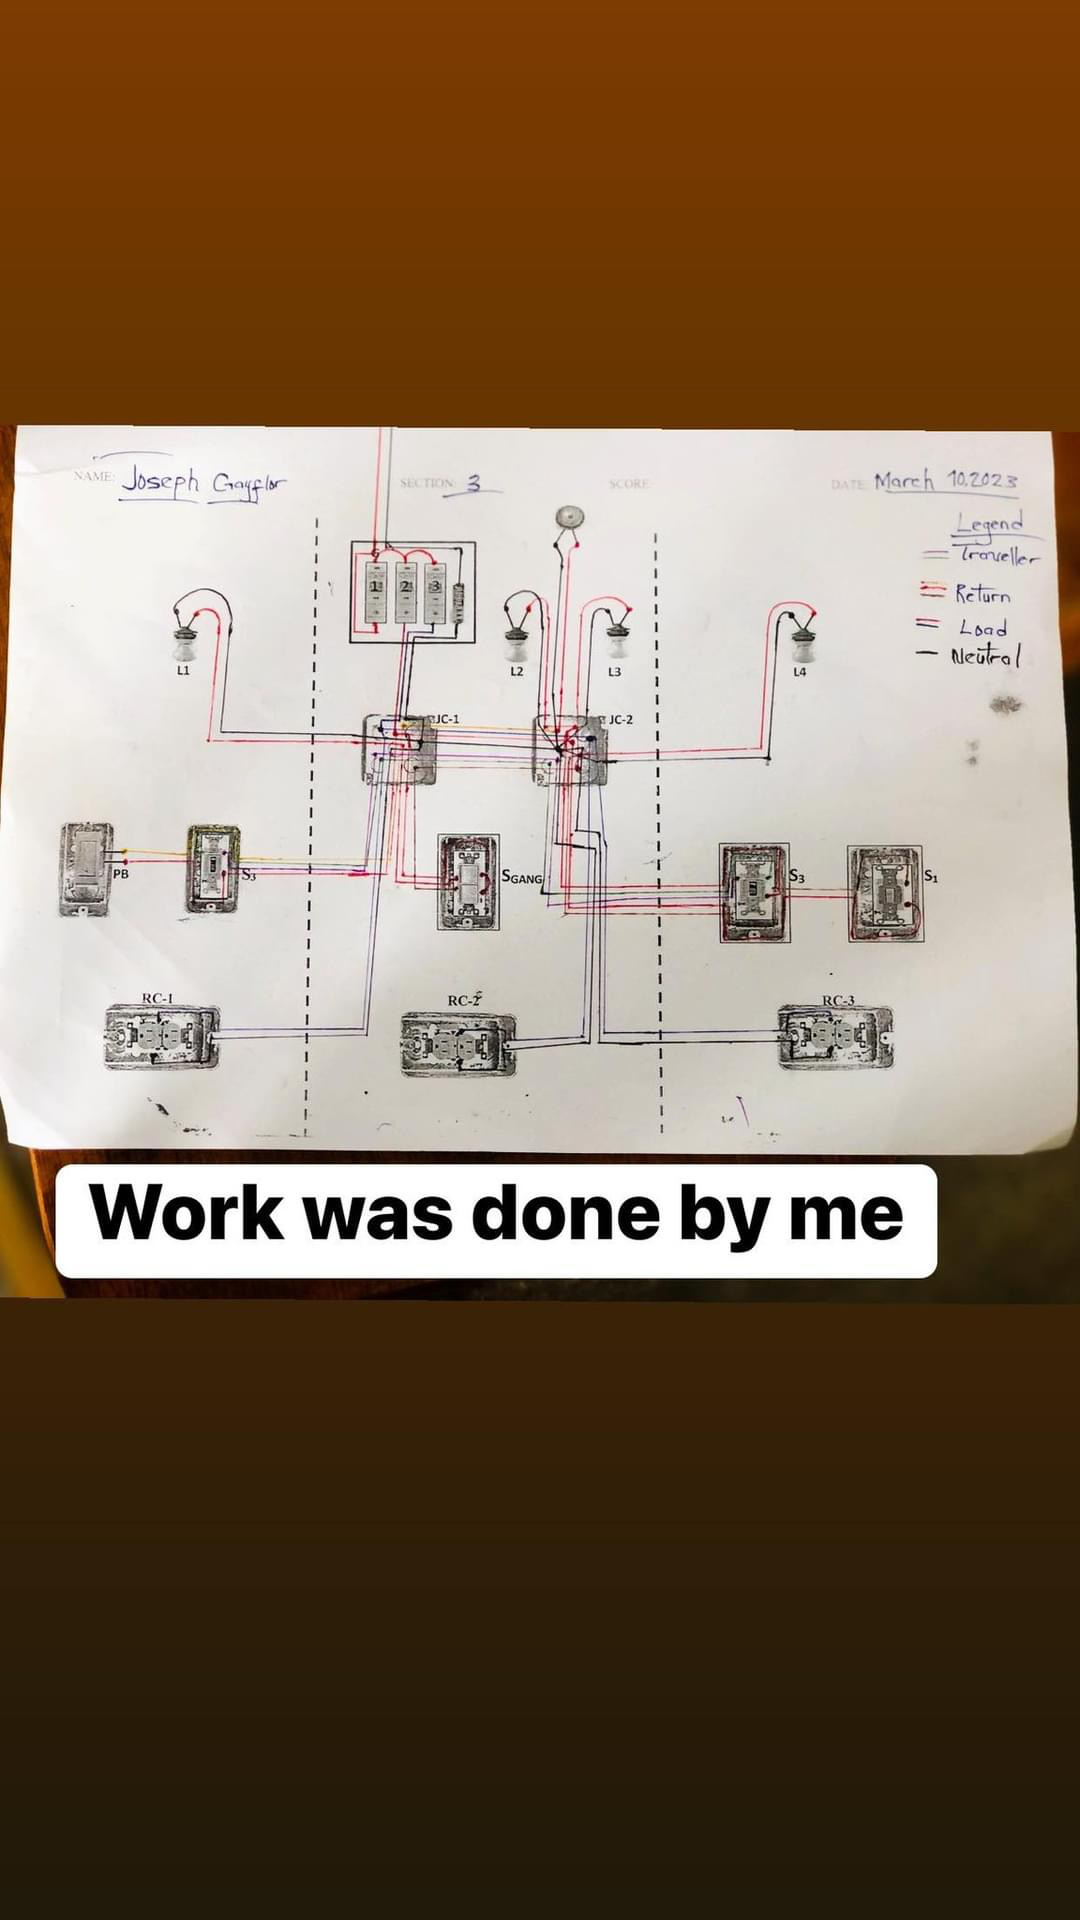 NAME: Joseph Gayflor SECTION: 3 SCORE DATE March 10, 2023
Legend
Traveller
Return
Load
Neutral
1 2 3
L1 L2 L3 L4
JC-1 JC-2
PB S3 SGANG S3 S1
RC-1 RC-2 RC-3
Work was done by me